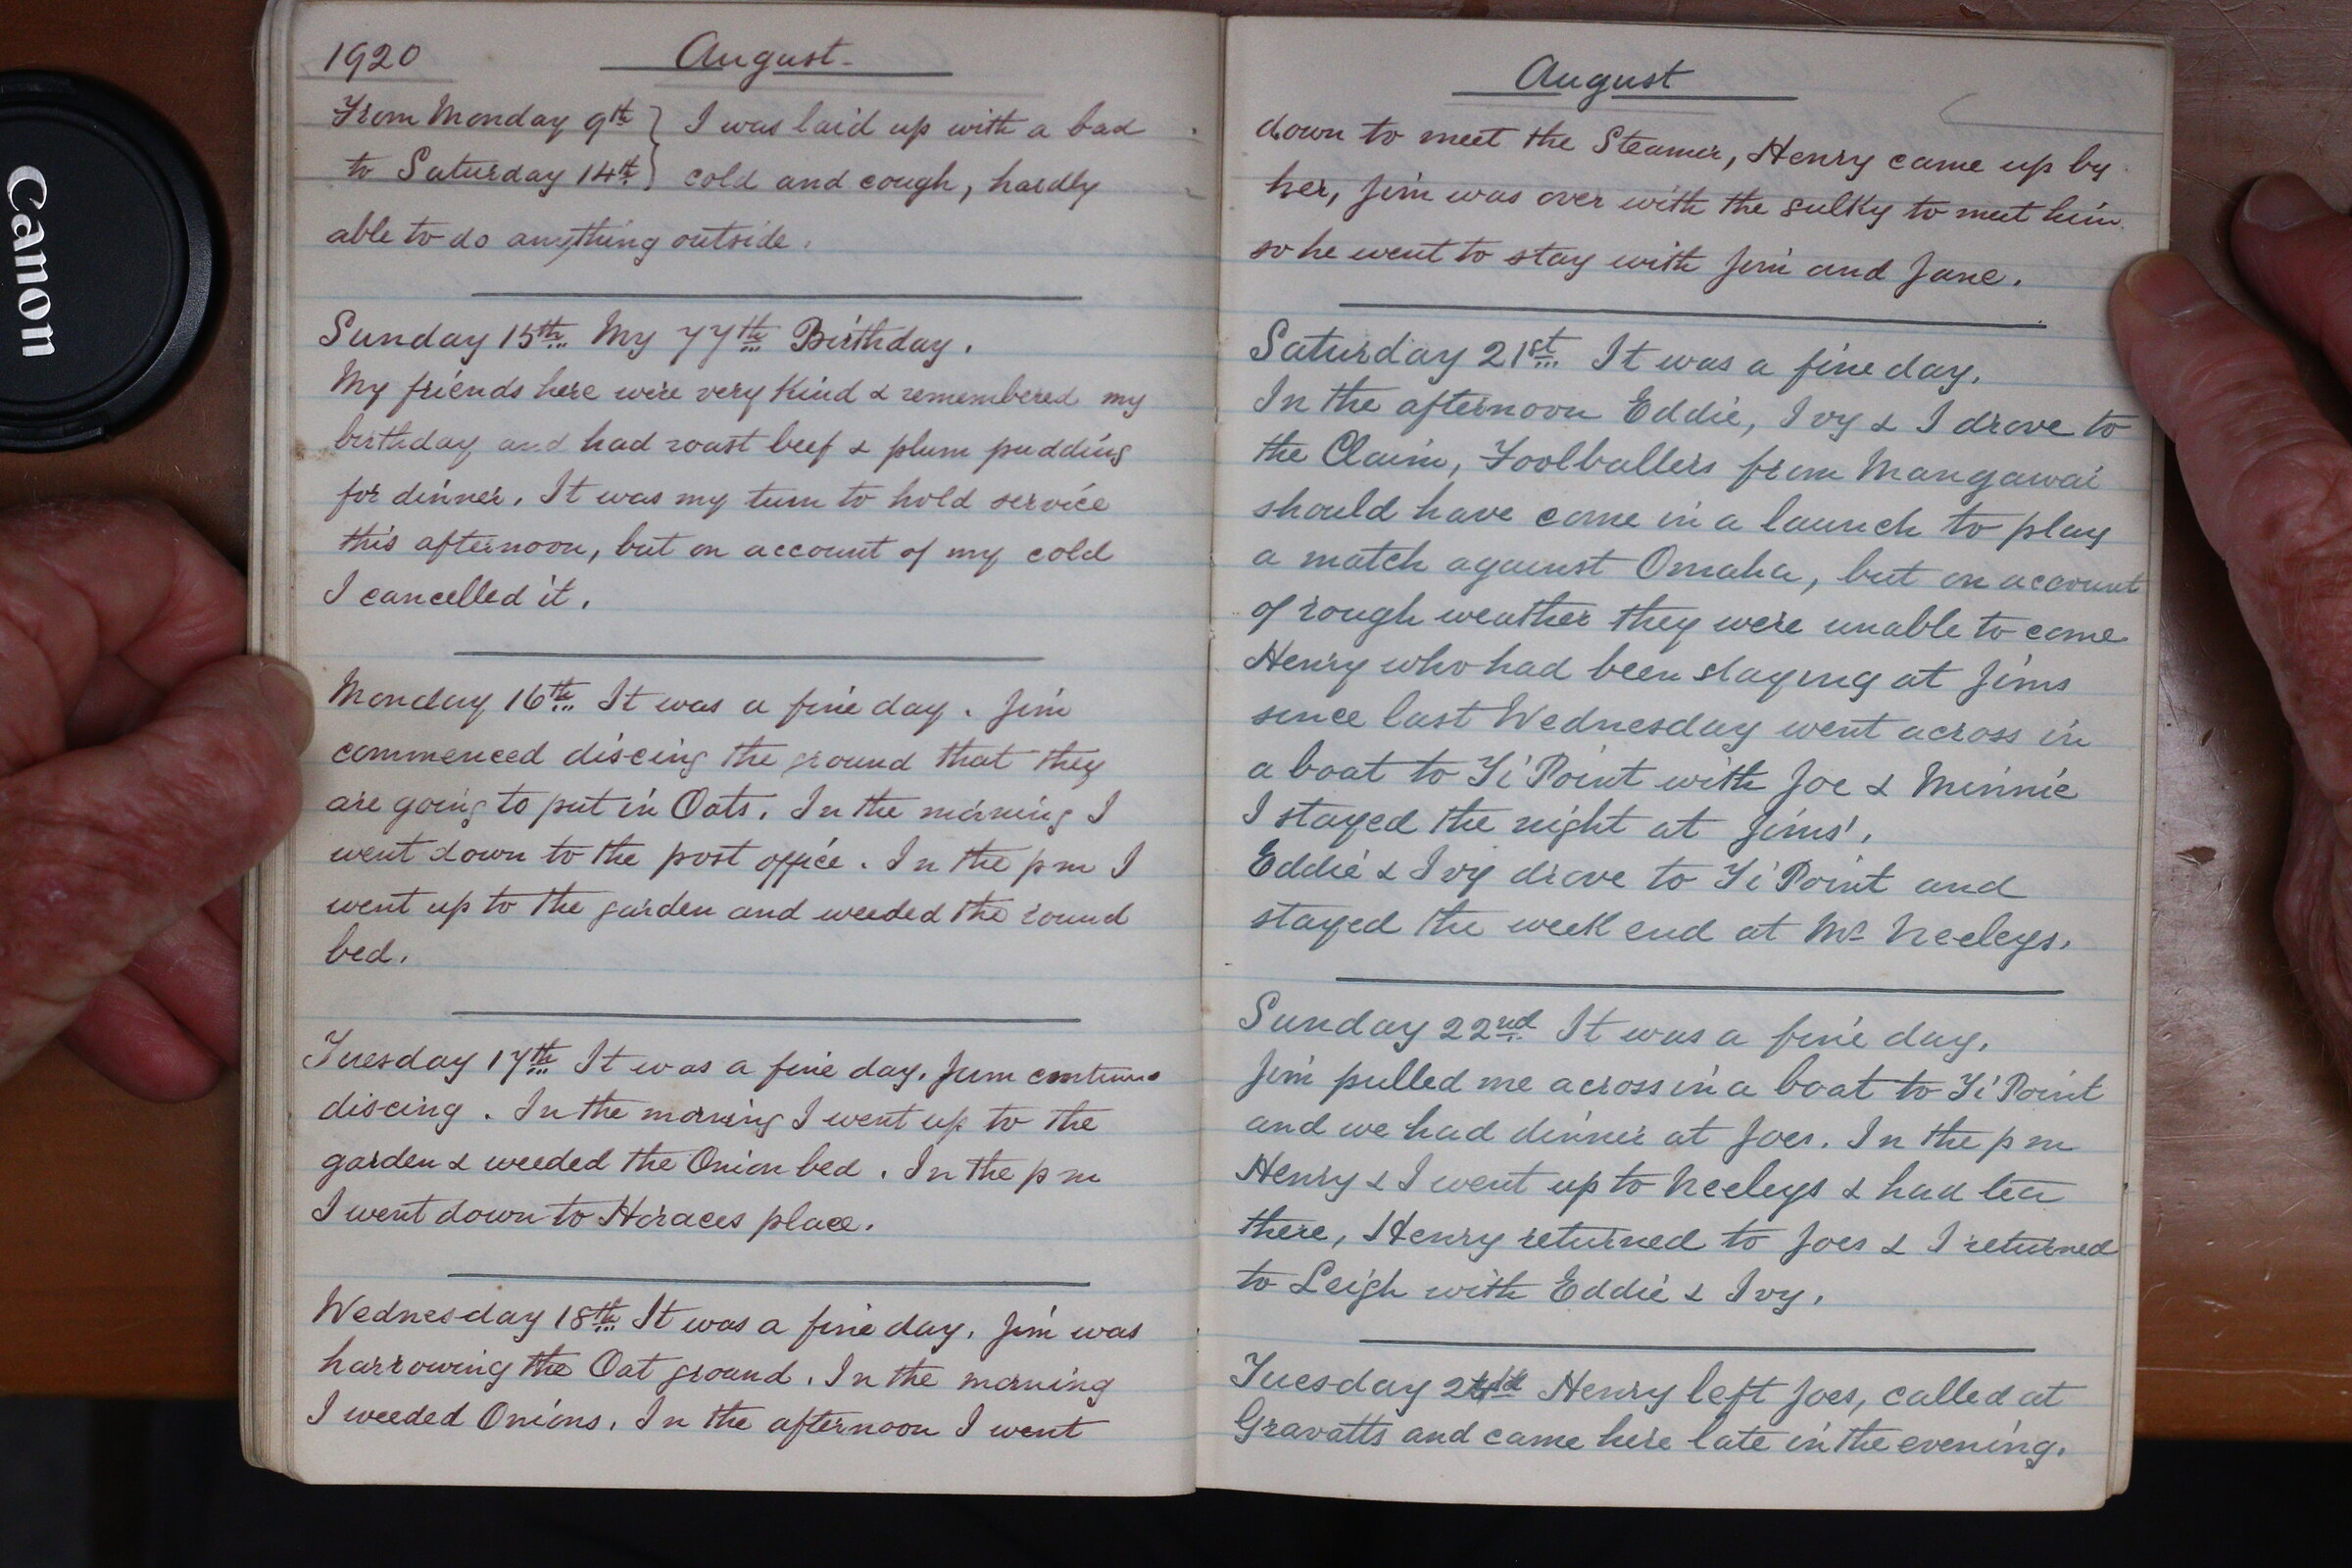 Canon
1920 August
From Monday 9th } I was laid up with a bad
to Saturday 14th } cold and cough, hardly
able to do anything outside.
Sunday 15th My 77th Birthday.
My friends here were very kind & remembered my
birthday and had roast beef & plum pudding
for dinner. It was my turn to hold service
this afternoon, but on account of my cold
I cancelled it.
Monday 16th It was a fine day. Jim
commenced discing the ground that they
are going to put in Oats. In the morning I
went down to the post office. In the pm I
went up to the garden and weeded the round
bed.
Tuesday 17th It was a fine day. Jim
discing. In the morning I went up to the
garden & weeded the Onion bed. In the pm
I went down to Horaces place.
Wednesday 18th It was a fine day. Jim was
harrowing the Oat ground. In the morning
I weeded Onions. In the afternoon I went
August
down to meet the Steamer, Henry came up by
her, Jim was over with the sulky to meet him
so he went to stay with Jim and Jane.
Saturday 21st It was a fine day.
In the afternoon Eddie, Ivy & I drove to
the Claim, Foolballers from Mangawai
should have come in a launch to play
a match against Omaha, but on account
of rough weather they were unable to come
Henry who had been staying at Jims
since last Wednesday went across in
a boat to Ti Point with Joe & Minnie
I stayed the night at Jims'.
Eddie & Ivy drove to Ti Point and
stayed the week end at Mr Neeleys.
Sunday 22nd It was a fine day.
Jim pulled me across in a boat to Ti Point
and we had dinner at Joes. In the pm
Henry & I went up to Neeleys & had tea
there, Henry returned to Joes & I returned
to Leigh with Eddie & Ivy.
Tuesday Henry left Joes, called at
Gravatts and came here late in the evening.